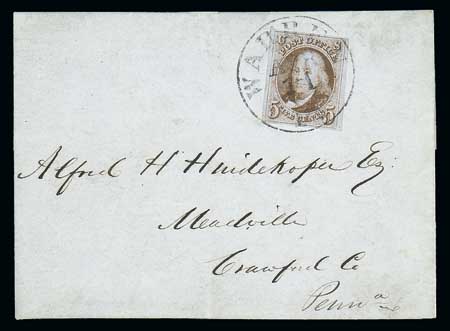 WARREN
U S
POST OFFICE
5 FIVE CENTS 5
Alfred H Huidekoper Esq
Meadville
Crawford Co
Penna